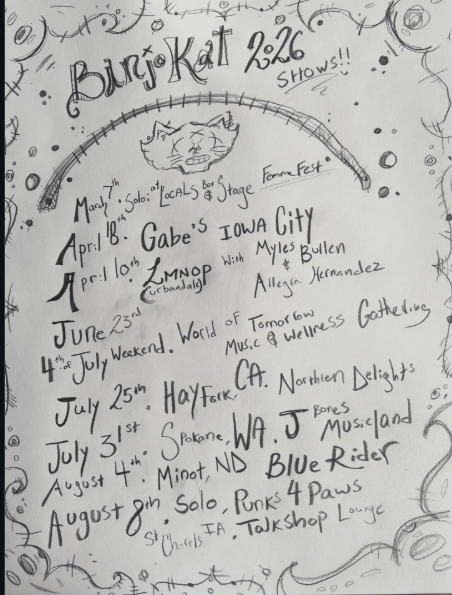 BinjoKat 2026
SHOWS!!
March 7th. Solo: at LOCALS Bar & Stage Femme Fest
April 18th. Gabe's IOWA City
April 10th. LMNOP With Myles & Bullen
(urbandale) Allegra Hernandez
June 23rd
4th of July Weekend. World of Tomorrow
Music & Wellness Gathering
July 25th. HayFork, CA. Northern Delights
July 31st. Spokane, WA. J Bones Musicland
August 4th. Minot, ND Blue Rider
August 8th. Solo, Punks 4 Paws
St Charels IA. Talkshop Lounge